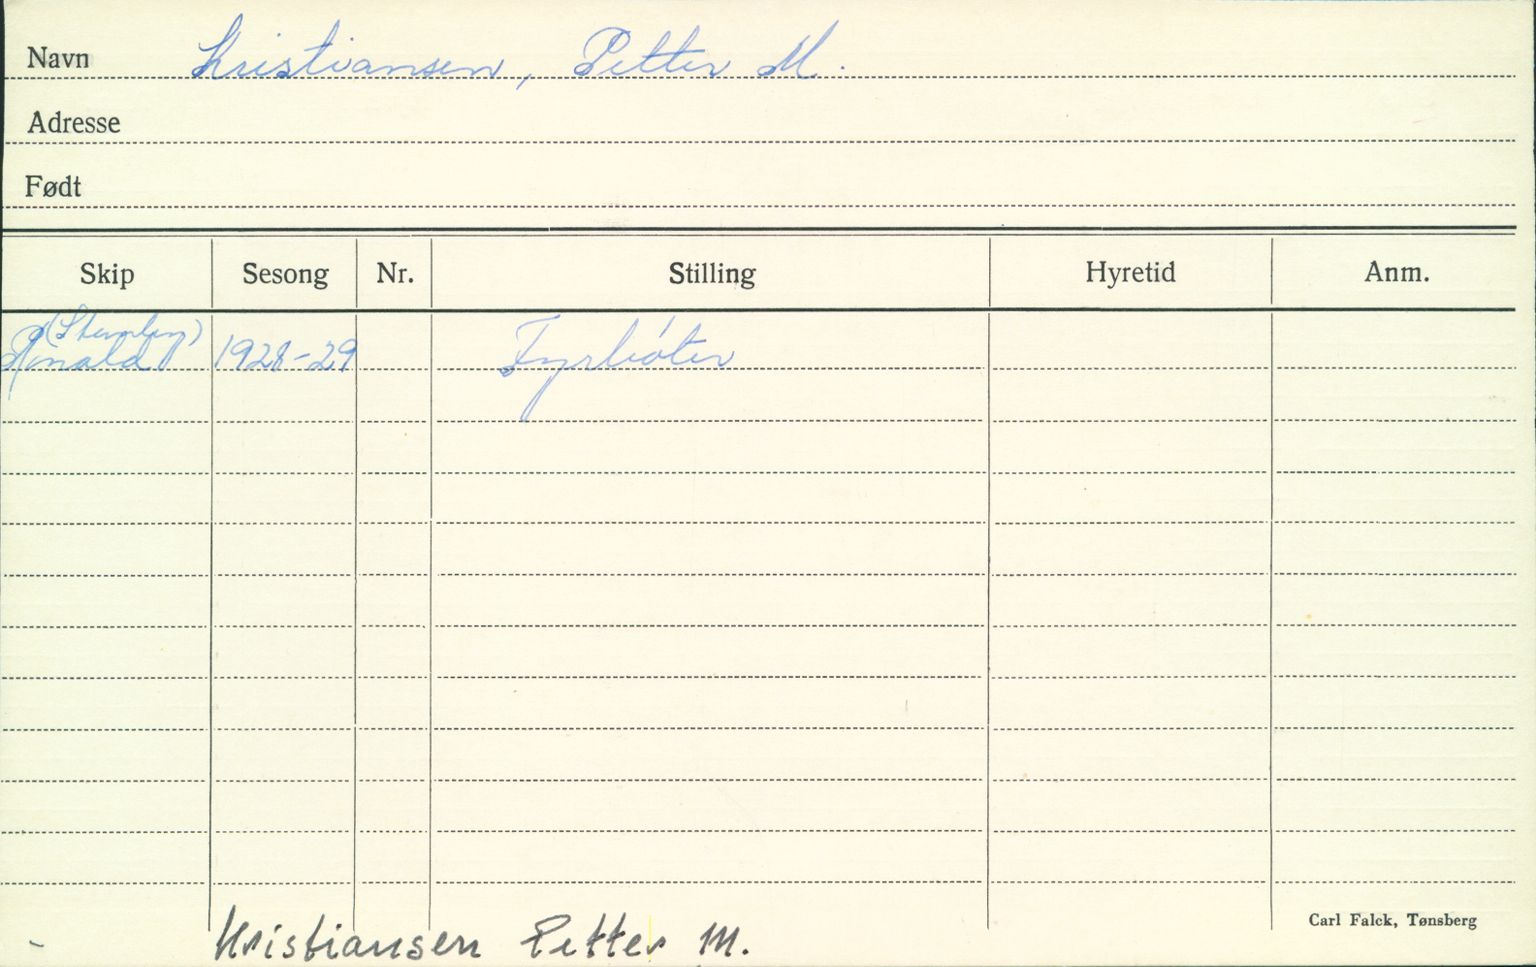 Navn Kristiansen, Petter M.
Adresse
Født
Skip Sesong Nr. Stilling Hyretid Anm.
Ronald 1928-29 Fyrbøter
Carl Falck, Tønsberg
Kristiansen Petter M.